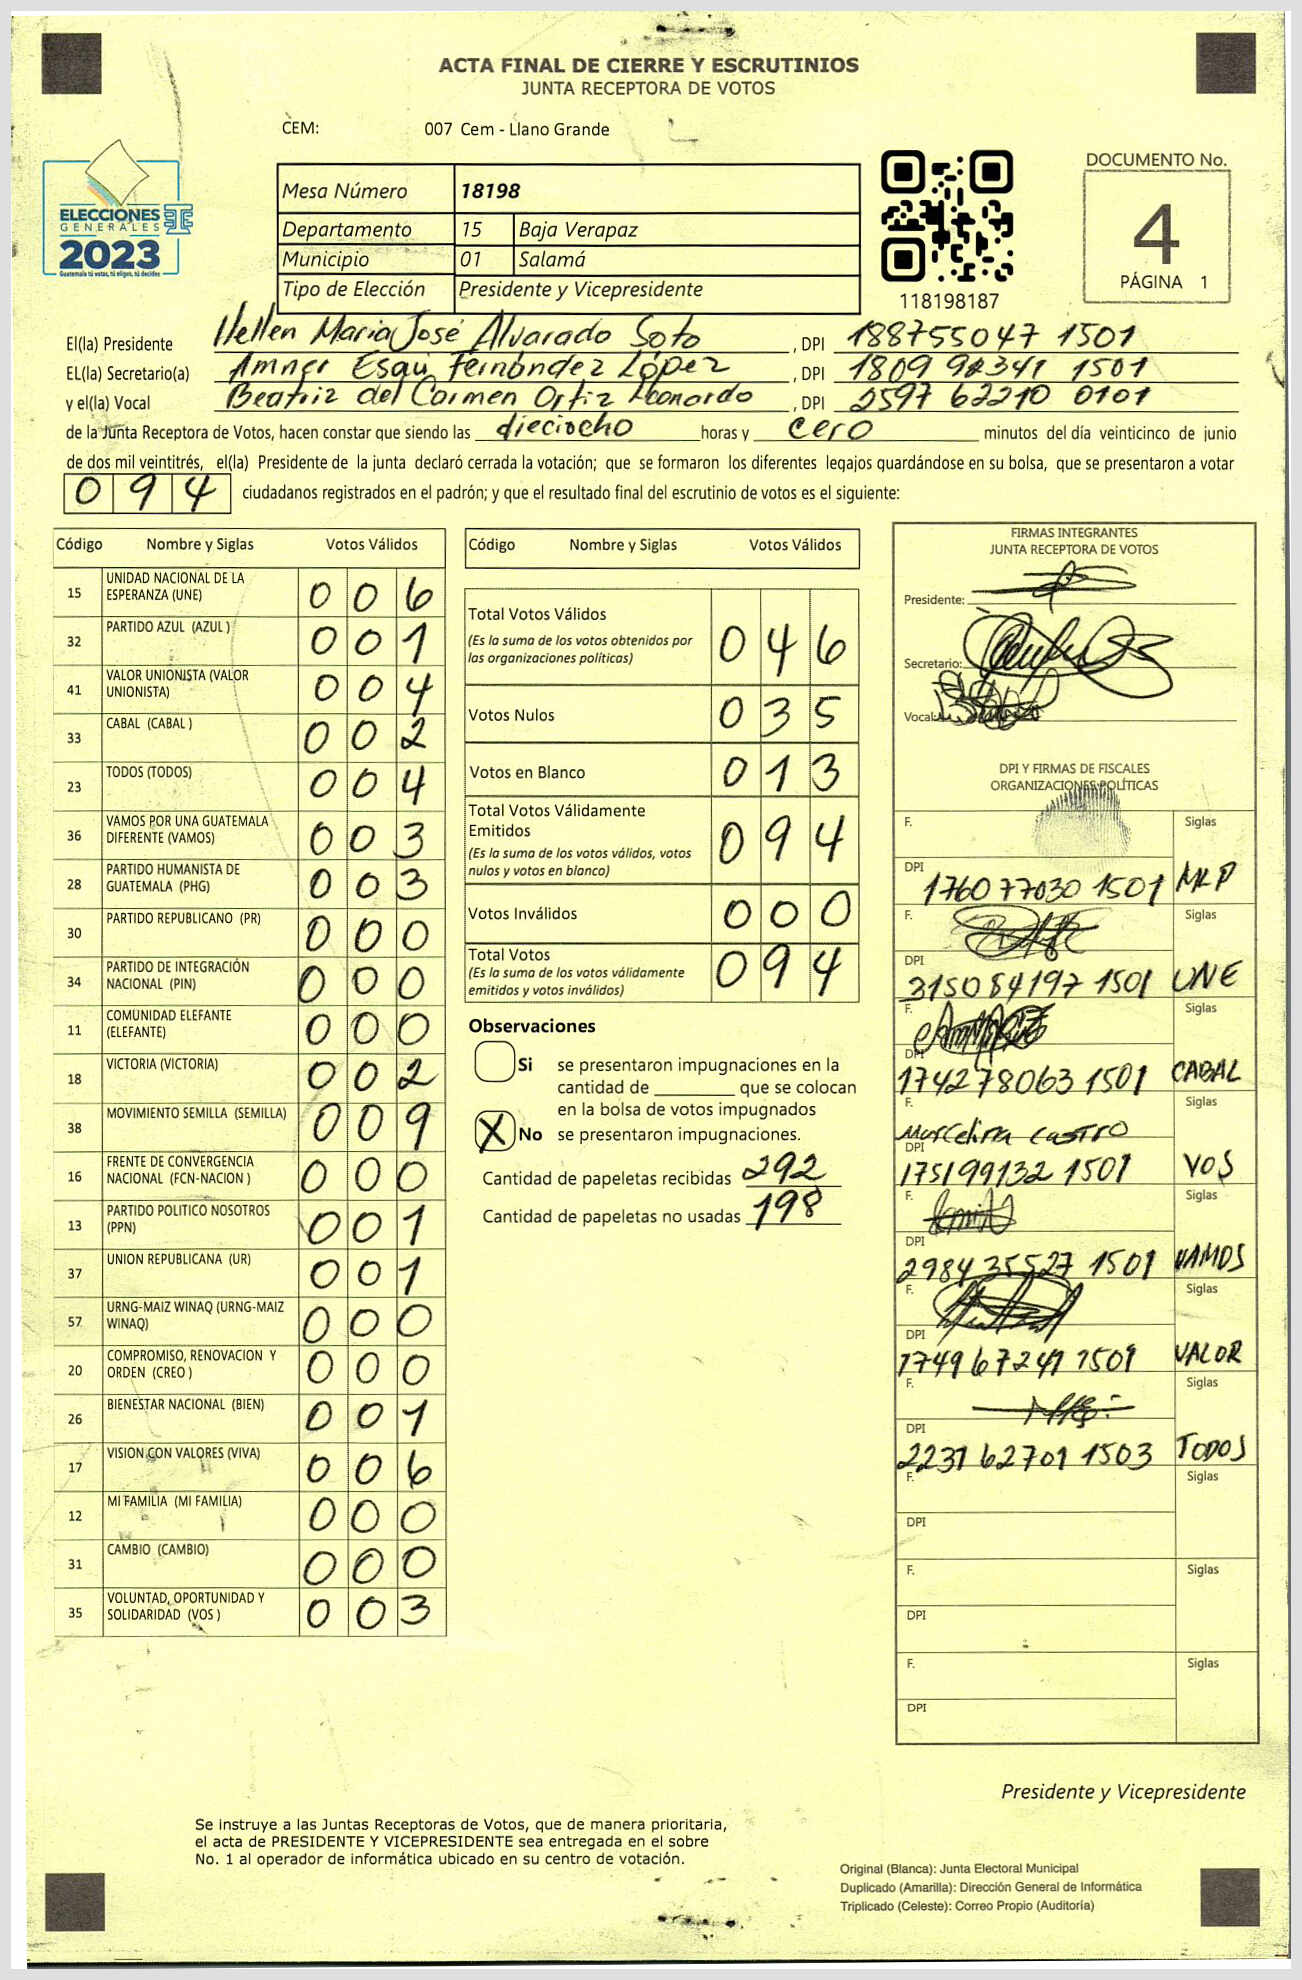 ACTA FINAL DE CIERRE Y ESCRUTINIOS
JUNTA RECEPTORA DE VOTOS
CEM: 007 Cem - Llano Grande
ELECCIONES
GENERALES
2023
Guatemala tú votas, tú eliges, tú decides
Mesa Número 18198
Departamento 15 Baja Verapaz
Municipio 01 Salamá
Tipo de Elección Presidente y Vicepresidente
118198187
DOCUMENTO No.
4
PÁGINA 1
El(la) Presidente Hellen Maria José Alvarado Soto , DPI 188755047 1501
EL(la) Secretario(a) Amner Esaú Fernández López , DPI 1501
y el(la) Vocal Beatriz del Carmen Ortiz , DPI 2597 62210 0101
de la Junta Receptora de Votos, hacen constar que siendo las dieciocho horas y cero minutos del día veinticinco de junio
de dos mil veintitrés, el(la) Presidente de la junta declaró cerrada la votación; que se formaron los diferentes legajos guardándose en su bolsa, que se presentaron a votar
094 ciudadanos registrados en el padrón; y que el resultado final del escrutinio de votos es el siguiente:
Código Nombre y Siglas Votos Válidos
15 UNIDAD NACIONAL DE LA ESPERANZA (UNE) 006
32 PARTIDO AZUL (AZUL ) 001
41 VALOR UNIONISTA (VALOR UNIONISTA) 004
33 CABAL (CABAL ) 002
23 TODOS (TODOS) 004
36 VAMOS POR UNA GUATEMALA DIFERENTE (VAMOS) 003
28 PARTIDO HUMANISTA DE GUATEMALA (PHG) 003
30 PARTIDO REPUBLICANO (PR) 000
34 PARTIDO DE INTEGRACIÓN NACIONAL (PIN) 000
11 COMUNIDAD ELEFANTE (ELEFANTE) 000
18 VICTORIA (VICTORIA) 002
38 MOVIMIENTO SEMILLA (SEMILLA) 009
16 FRENTE DE CONVERGENCIA NACIONAL (FCN-NACION ) 000
13 PARTIDO POLITICO NOSOTROS (PPN) 001
37 UNION REPUBLICANA (UR) 001
57 URNG-MAIZ WINAQ (URNG-MAIZ WINAQ) 000
20 COMPROMISO, RENOVACION Y ORDEN (CREO ) 000
26 BIENESTAR NACIONAL (BIEN) 001
17 VISION CON VALORES (VIVA) 006
12 MI FAMILIA (MI FAMILIA) 000
31 CAMBIO (CAMBIO) 000
35 VOLUNTAD, OPORTUNIDAD Y SOLIDARIDAD (VOS ) 003
Código Nombre y Siglas Votos Válidos
Total Votos Válidos 046
(Es la suma de los votos obtenidos por
las organizaciones políticas)
Votos Nulos 035
Votos en Blanco 013
Total Votos Válidamente
Emitidos 094
(Es la suma de los votos válidos, votos
nulos y votos en blanco)
Votos Inválidos 000
Total Votos 094
(Es la suma de los votos válidamente
emitidos y votos inválidos)
Observaciones
Si se presentaron impugnaciones en la
cantidad de ________ que se colocan
en la bolsa de votos impugnados
X No se presentaron impugnaciones.
Cantidad de papeletas recibidas 292
Cantidad de papeletas no usadas 198
FIRMAS INTEGRANTES
JUNTA RECEPTORA DE VOTOS
Presidente:
Secretario:
Vocal:
DPI Y FIRMAS DE FISCALES
ORGANIZACIONES POLÍTICAS
F. Siglas
DPI 1760 77030 1501 MLP
F. Siglas
DPI 3150 84197 1501 UNE
F. Siglas
DPI 1742 78063 1501 CABAL
F. Marcelina Castro Siglas
DPI 1751 99132 1501 VOS
F. Siglas
DPI 2984 35527 1501 VAMOS
F. Siglas
DPI 1749 67241 1501 VALOR
F. Siglas
DPI 2231 62701 1503 TODOS
F. Siglas
DPI
F. Siglas
DPI
F. Siglas
DPI
Presidente y Vicepresidente
Se instruye a las Juntas Receptoras de Votos, que de manera prioritaria,
el acta de PRESIDENTE Y VICEPRESIDENTE sea entregada en el sobre
No. 1 al operador de informática ubicado en su centro de votación.
Original (Blanca): Junta Electoral Municipal
Duplicado (Amarilla): Dirección General de Informática
Triplicado (Celeste): Correo Propio (Auditoría)